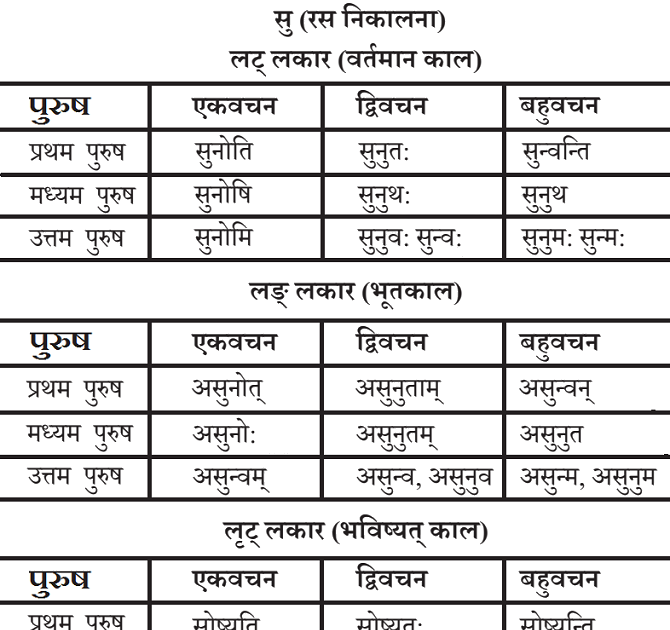 सु (रस निकालना)
लट् लकार (वर्तमान काल)
पुरुष एकवचन द्विवचन बहुवचन
प्रथम पुरुष सुनोति सुनुत: सुन्वन्ति
मध्यम पुरुष सुनोषि सुनुथ: सुनुथ
उत्तम पुरुष सुनोमि सुनुव: सुन्व: सुनुम: सुन्म:
लङ् लकार (भूतकाल)
पुरुष एकवचन द्विवचन बहुवचन
प्रथम पुरुष असुनोत् असुनुताम् असुन्वन्
मध्यम पुरुष असुनो: असुनुतम् असुनुत
उत्तम पुरुष असुन्वम् असुन्व, असुनुव असुन्म, असुनुम
लृट् लकार (भविष्यत् काल)
पुरुष एकवचन द्विवचन बहुवचन
प्रथम पुरुष सोष्यति सोष्यत: सोष्यन्ति